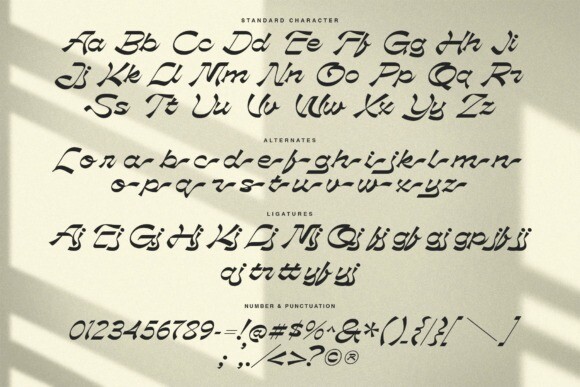 STANDARD CHARACTER
Aa Bb Cc Dd Ee Ff Gg Hh Ii
Jj Kk Ll Mm Nn Oo Pp Qq Rr
Ss Tt Uu Vv Ww Xx Yy Zz
ALTERNATES
L o r a-b-c-d-e-f-g-h-i-j-k-l-m-n-
o-p-q-r-s-t-u-v-w-x-y-z-
LIGATURES
Aj Ej Gj Hj Kj Lj Mj Qj fj gb gj gp jb jj
qj tr tt yb yj
NUMBER & PUNCTUATION
0123456789-=!@#$%^&*()_{|}[\]
;,./<>?©®